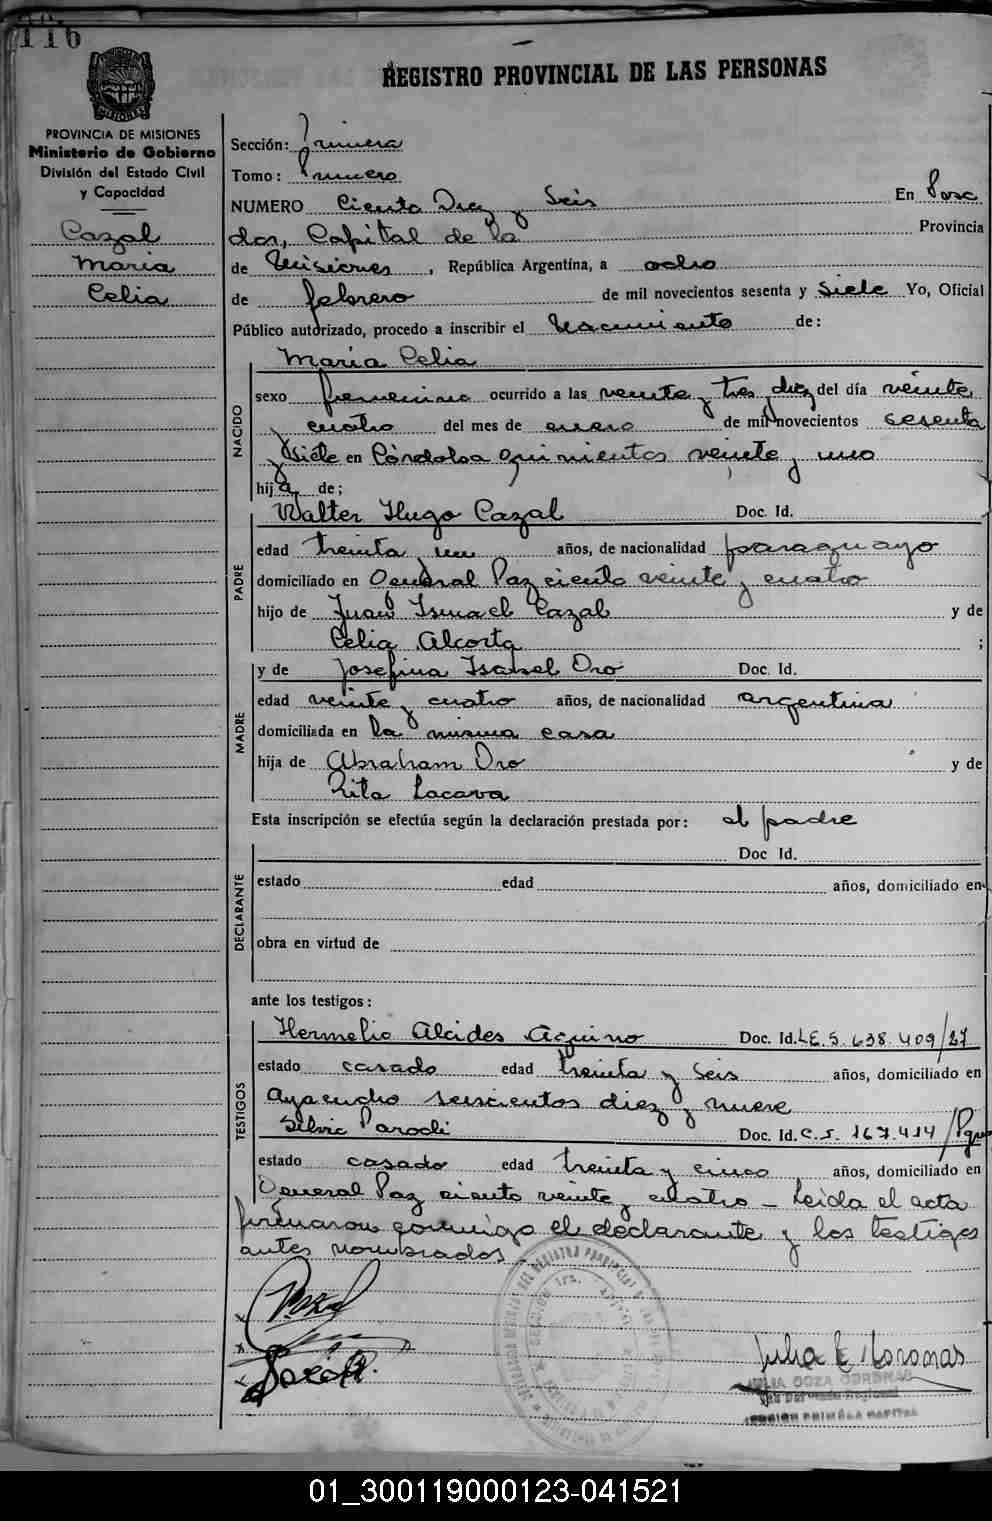 116
REGISTRO PROVINCIAL DE LAS PERSONAS
MISIONES
PROVINCIA DE MISIONES
Ministerio de Gobierno
División del Estado Civil
y Capacidad
Cazal
Maria
Celia
Sección: Primera
Tomo: Primero
NUMERO Ciento Diez y Seis En Posa
das, Capital de la Provincia
de Misiones, República Argentina, a ocho
de febrero de mil novecientos sesenta y Siete Yo, Oficial
Público autorizado, procedo a inscribir el Nacimiento de:
Maria Celia
NACIDO
sexo femenino ocurrido a las veinte y tres diez del día veinte
y cuatro del mes de enero de mil novecientos sesenta
y Siete en Córdoba quinientos veinte y uno
hija de;
PADRE
Walter Hugo Cazal Doc. Id.
edad treinta un años, de nacionalidad paraguayo
domiciliado en General Paz ciento veinte y cuatro
hijo de Juan Ismael Cazal y de
Celia Alcorta ;
MADRE
y de Josefina Isabel Oro Doc. Id.
edad veinte y cuatro años, de nacionalidad argentina
domiciliada en la misma casa
hija de Abraham Oro y de
Rita Lacava
Esta inscripción se efectúa según la declaración prestada por: el padre
DECLARANTE
Doc Id.
estado edad años, domiciliado en
obra en virtud de
ante los testigos:
TESTIGOS
Hermelio Alcides Aquino Doc. Id. L.E. 5.638.409/27
estado casado edad treinta y seis años, domiciliado en
Ayacucho seiscientos diez y nueve
Silvio Parodi Doc. Id. C.I. 167.414/Pguay
estado casado edad treinta y cinco años, domiciliado en
General Paz ciento veinte y cuatro - Leida el acta
firmaron conmigo el declarante y los testigos
antes nombrados
Julia E. Coronas
JULIA COZA CORONAS
SECCION PRIMERA CAPITAL
01_300119000123-041521